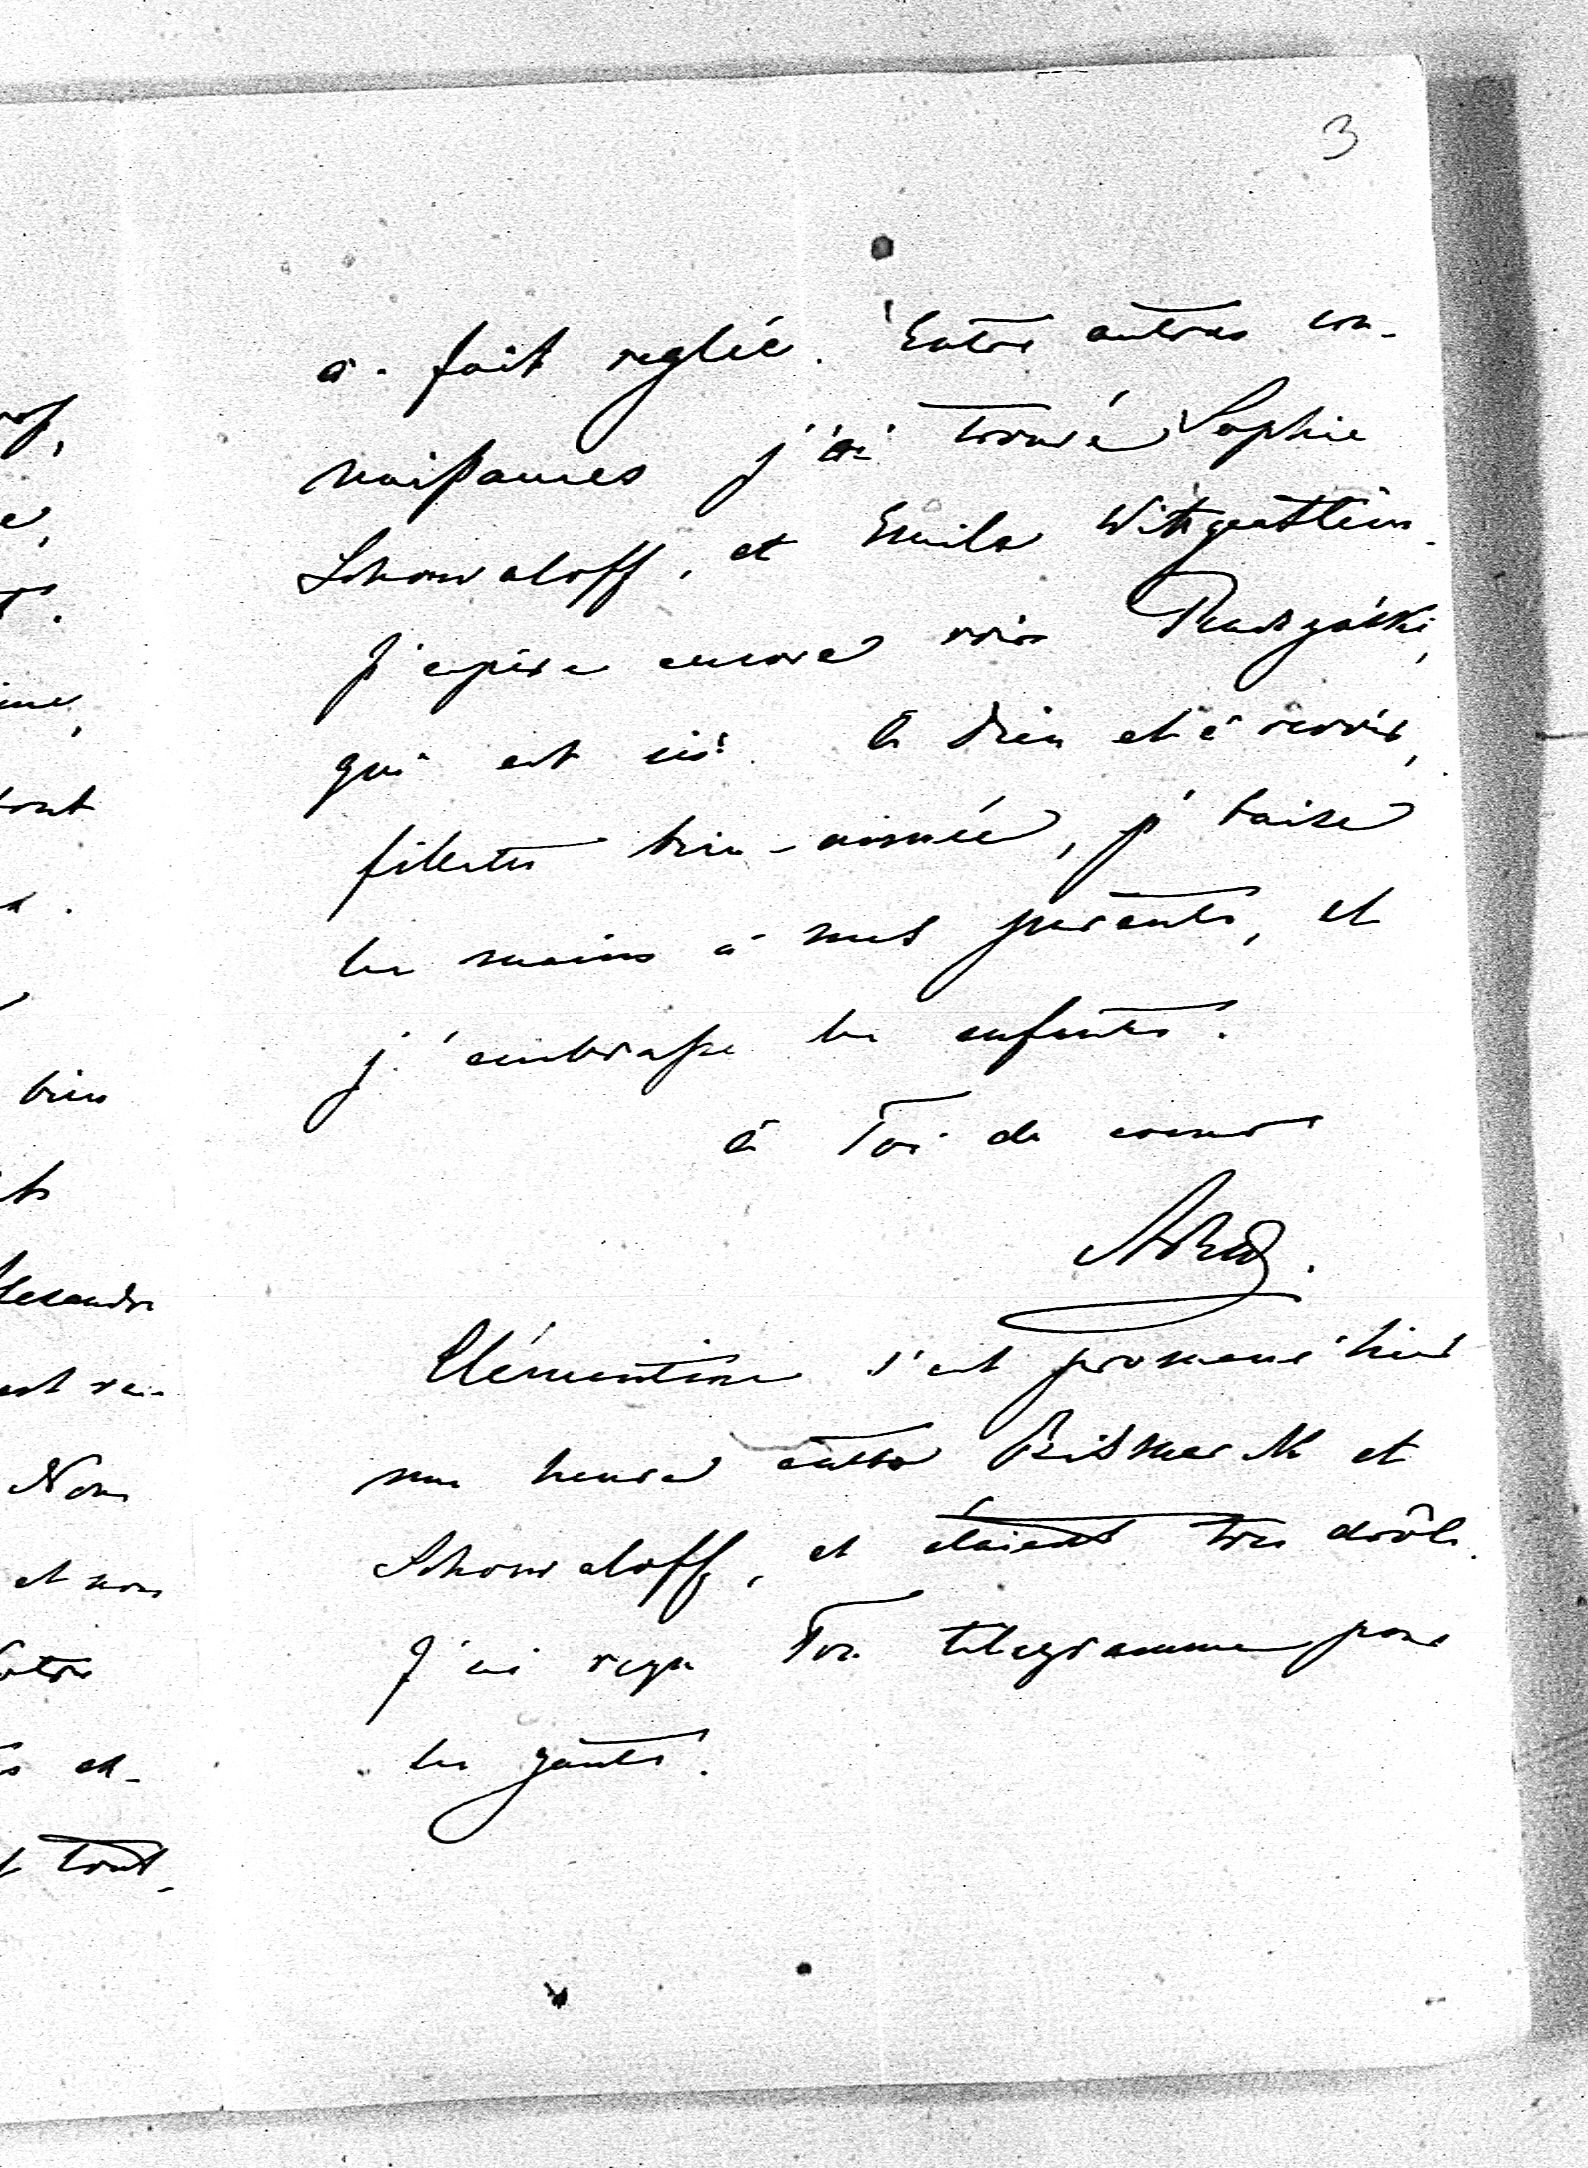 3
à-fait reglée. Entre autres con-
naissances j'ai trouvé Sophie
Schouwaloff, et Emile Wittgenstein.
J'espère encore voir
qui est ici. A Dieu et à revoir,
fillette bien-aimée, j' baise
les mains à mes parents, et
j'embrasse les enfants.
à Toi de coeur
Clémentine s'est promené hier
une heure entre Bismark et
Schouwaloff, et étaient très drôle.
J'ai reçu Ton télégramme pour
les gants.
tout
bien
lexandre
Nous
et nous
tout